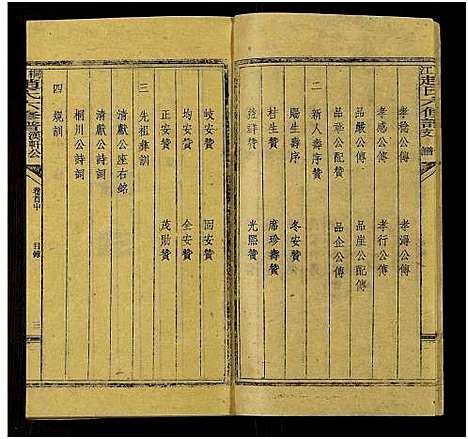 孝感公傳 孝溥公傳
品嚴公傳 孝行公傳
品崇公傳 品崖公配傳
品宗公配贊 品企公傳
二 新人壽序贊
賜生壽序 冬安贊
村生贊 席珍壽贊
菈祥贊 光熙贊
岐安贊 固安贊
均安贊 全安贊
正安贊 茂勛贊
三 先祖彝訓
清獻公座右銘
清獻公詩詞
桐川公詩詞
四 規訓
桐 趙氏六修譜 漢軒公
卷首中 目錄 三